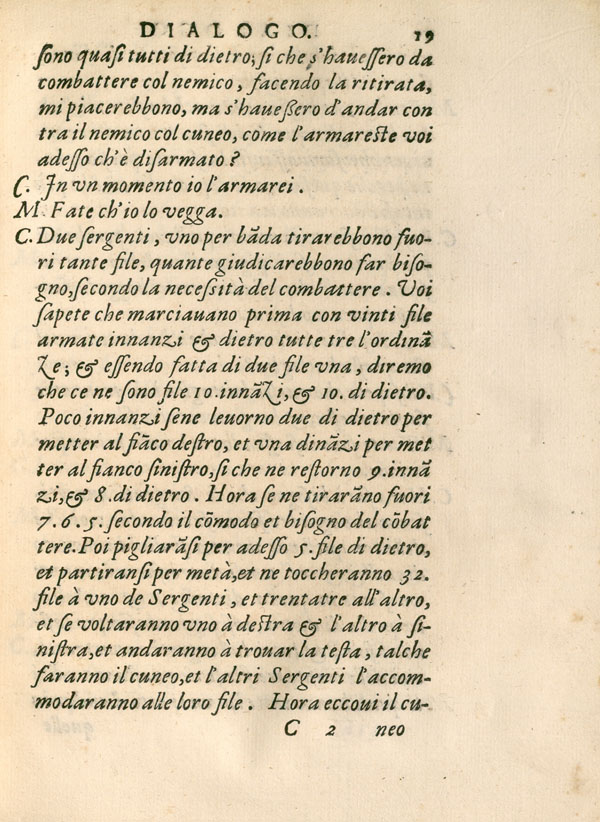 DIALOGO. 19
sono quasi tutti di dietro; si che s'hauessero da
combattere col nemico, facendo la ritirata,
mi piacerebbono, ma s'haueßero d'andar con
tra il nemico col cuneo, come l'armareste voi
adesso ch'è disarmato?
C. In vn momento io l'armarei.
M. Fate ch'io lo vegga.
C. Due sergenti, vno per bãda tirarebbono fuo-
ri tante file, quante giudicarebbono far biso-
gno, secondo la necessità del combattere. Voi
sapete che marciauano prima con vinti file
armate innanzi & dietro tutte tre l'ordinã
Ze; & essendo fatta di due file vna, diremo
che ce ne sono file 10. innãZi, & 10. di dietro.
Poco innanzi sene leuorno due di dietro per
metter al fiãco destro, et vna dinãzi per met
ter al fianco sinistro, si che ne restorno 9. innã
zi, & 8. di dietro. Hora se ne tirarãno fuori
7. 6. 5. secondo il cõmodo et bisogno del cõbat
tere. Poi pigliarãsi per adesso 5. file di dietro,
et partiransi per metà, et ne toccheranno 32.
file à vno de Sergenti, et trentatre all'altro,
et se voltaranno vno à destra & l'altro à si-
nistra, et andaranno à trouar la testa, talche
faranno il cuneo, et l'altri Sergenti l'accom-
modaranno alle loro file. Hora eccoui il cu-
C 2 neo